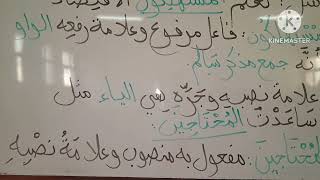 مستهينون الاقتصاد
ون: فاعل مرفوع وعلامة رفعه الواو
أنه جمع مذكر سالم
علامة نصبه وجره هي الياء مثل
ساعدت المحتاجين:
المحتاجين: مفعول به منصوب وعلامة نصبه
KINEMASTER